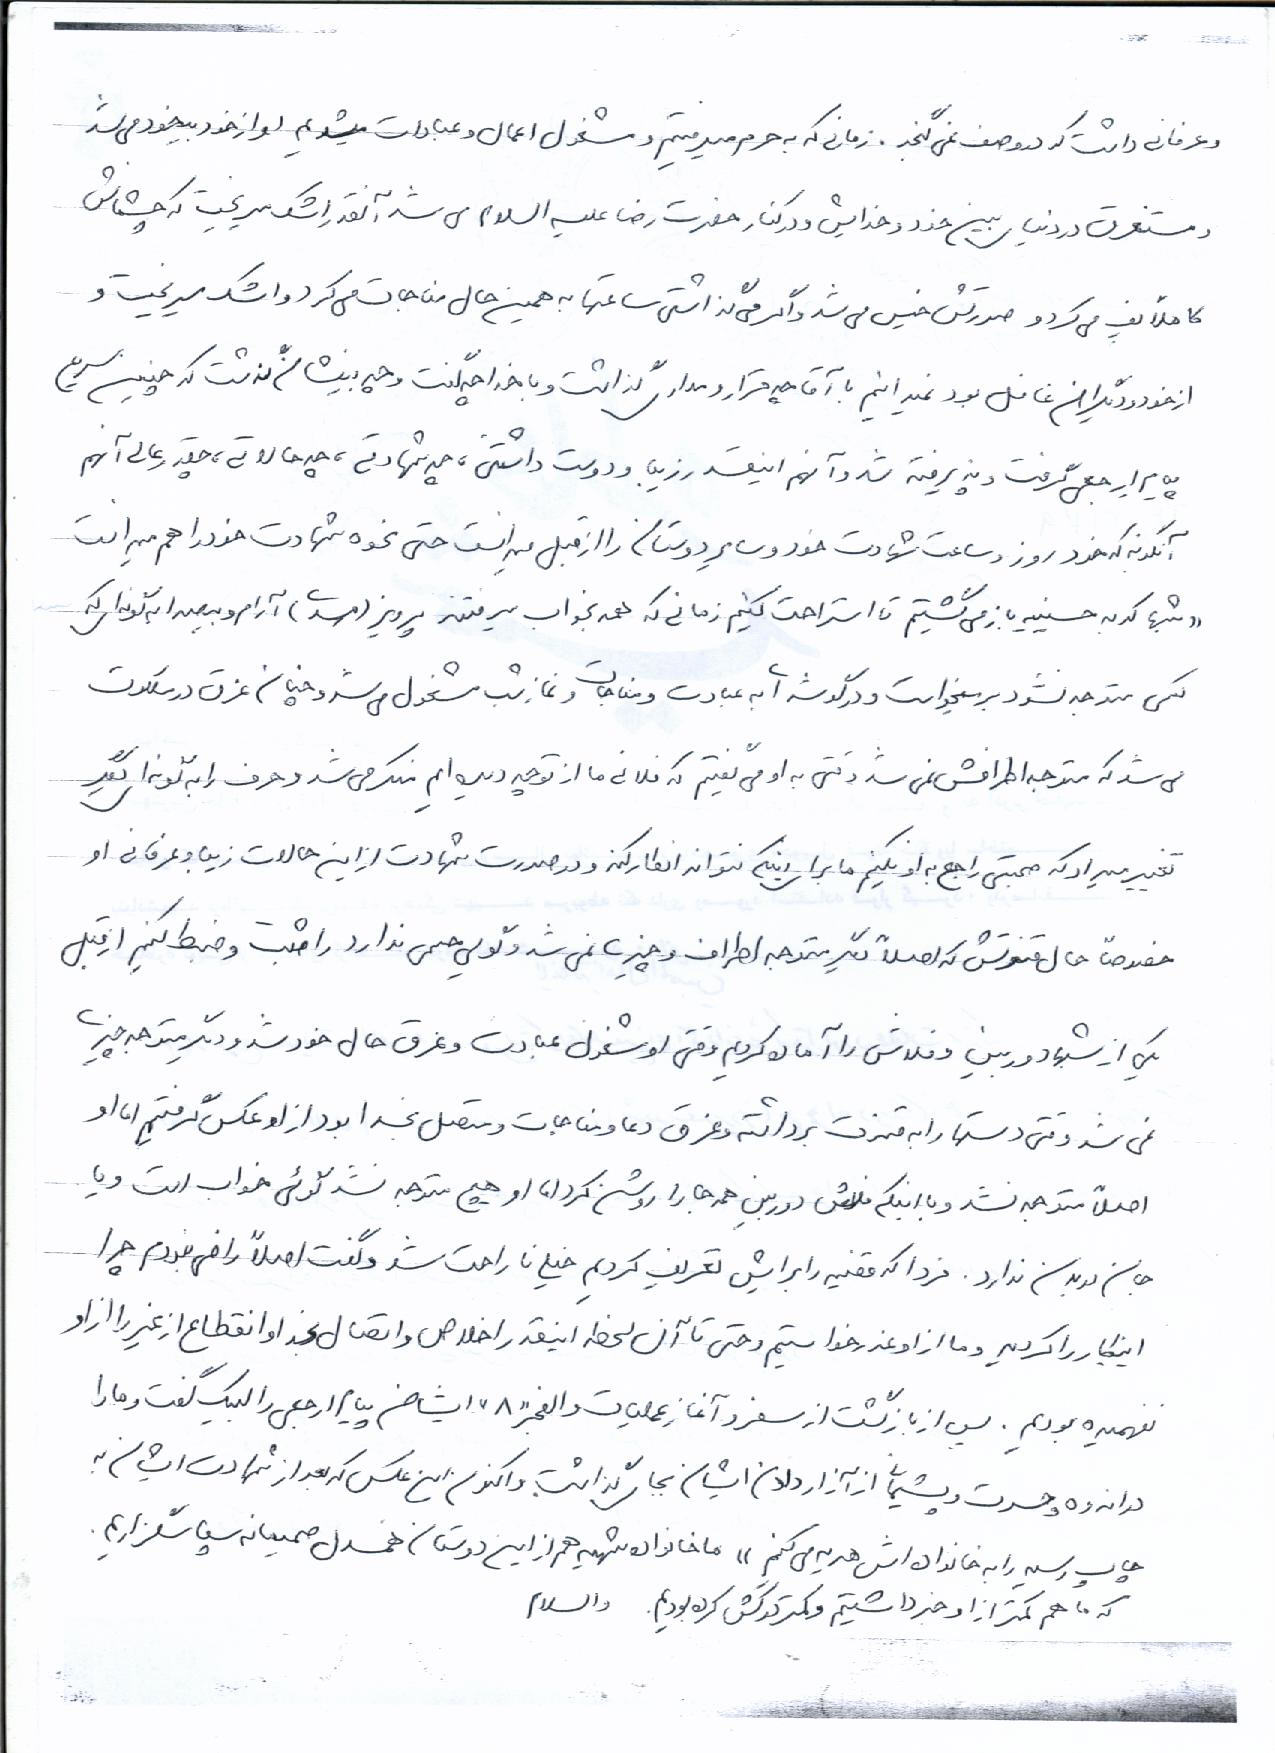 و عرفانی داشت که در وصف نمی گنجد. زمانی که به حرم میرفتیم و مشغول اعمال و عبادات میشدیم او از خود بیخود می شد
و مستغرق در دنیای بین خود و خدایش و در کنار حضرت رضا علیه السلام می شد آنقدر اشک میریخت که چشمانش
کاملاً پف می کرد و صورتش خیس می شد و اگر می گذاشتی ساعتها به همین حال مناجات می کرد و اشک میریخت و
از خود و دیگران غافل بود نمیدانیم با آقا چه قرار و مداری گذاشت و با خدا چه گفت و چه بینشان گذشت که چنین سریع
پیام ارجعی گرفت و پذیرفته شد و آنهم اینقدر زیبا و دوست داشتنی، چه شهادتی، چه حالاتی، چقدر عالی آنهم
آنگونه که خود روز و ساعت شهادت خود و سایر دوستان را از قبل میدانست حتی نحوه شهادت خود را هم میدانست
«شبها که به حسینیه باز می گشتیم تا استراحت کنیم زمانی که همه بخواب میرفتند پرویز (مهدی) آرام و بیصدا به گونه ای که
کسی متوجه نشود برمیخواست و در گوشه ای به عبادت و مناجات و نماز شب مشغول می شد و چنان غرق در ملکوت
می شد که متوجه اطرافش نمی شد وقتی به او می گفتیم که فلانی ما از تو چه دیده ایم منکر می شد و حرف را به گونه ای دیگر
تغییر میداد که صحبتی راجع به او نکنیم ما برای اینکه نتواند انکار کند و در صورت شهادت از این حالات زیبا و عرفانی او
خصوصاً حال قنوتش که اصلاً دیگر متوجه اطراف و چیزی نمی شد و گویی جسمی ندارد را ثبت و ضبط کنیم از قبل
یکی از شبها دوربین و فلاش را آماده کردیم وقتی او مشغول عبادت و غرق حال خود شد و دیگر متوجه چیزی
نمی شد وقتی دستها را به قنوت برداشته و غرق دعا و مناجات و متصل بخدا بود از او عکس گرفتیم اما او
اصلاً متوجه نشد و با اینکه فلاش دوربین همه جا را روشن کرد اما او هیچ متوجه نشد گوئی خواب است و یا
جان در بدن ندارد. فردا که قضیه را برایش تعریف کردیم خیلی ناراحت شد و گفت اصلاً راضی نبودم چرا
اینکار را کردید و ما از او عذر خواستیم و حتی تا آن لحظه اینقدر اخلاص و اتصال بخدا و انقطاع از غیر را از او
نفهمیده بودیم. پس از بازگشت از سفر و آغاز عملیات والفجر «۸» ایشان پیام ارجعی را لبیک گفت و ما را
در اندوه و حسرت و پشیمانی از آزار دادن ایشان بجای گذاشت و اکنون این عکس که بعد از شهادت ایشان به
چاپ رسید را به خانواده اش هدیه می کنیم» ما خانواده شهید هم از این دوستان همدل صمیمانه سپاسگزاریم.
که ما هم کمتر از او خبر داشتیم و کمتر درکش کرده بودیم. والسلام